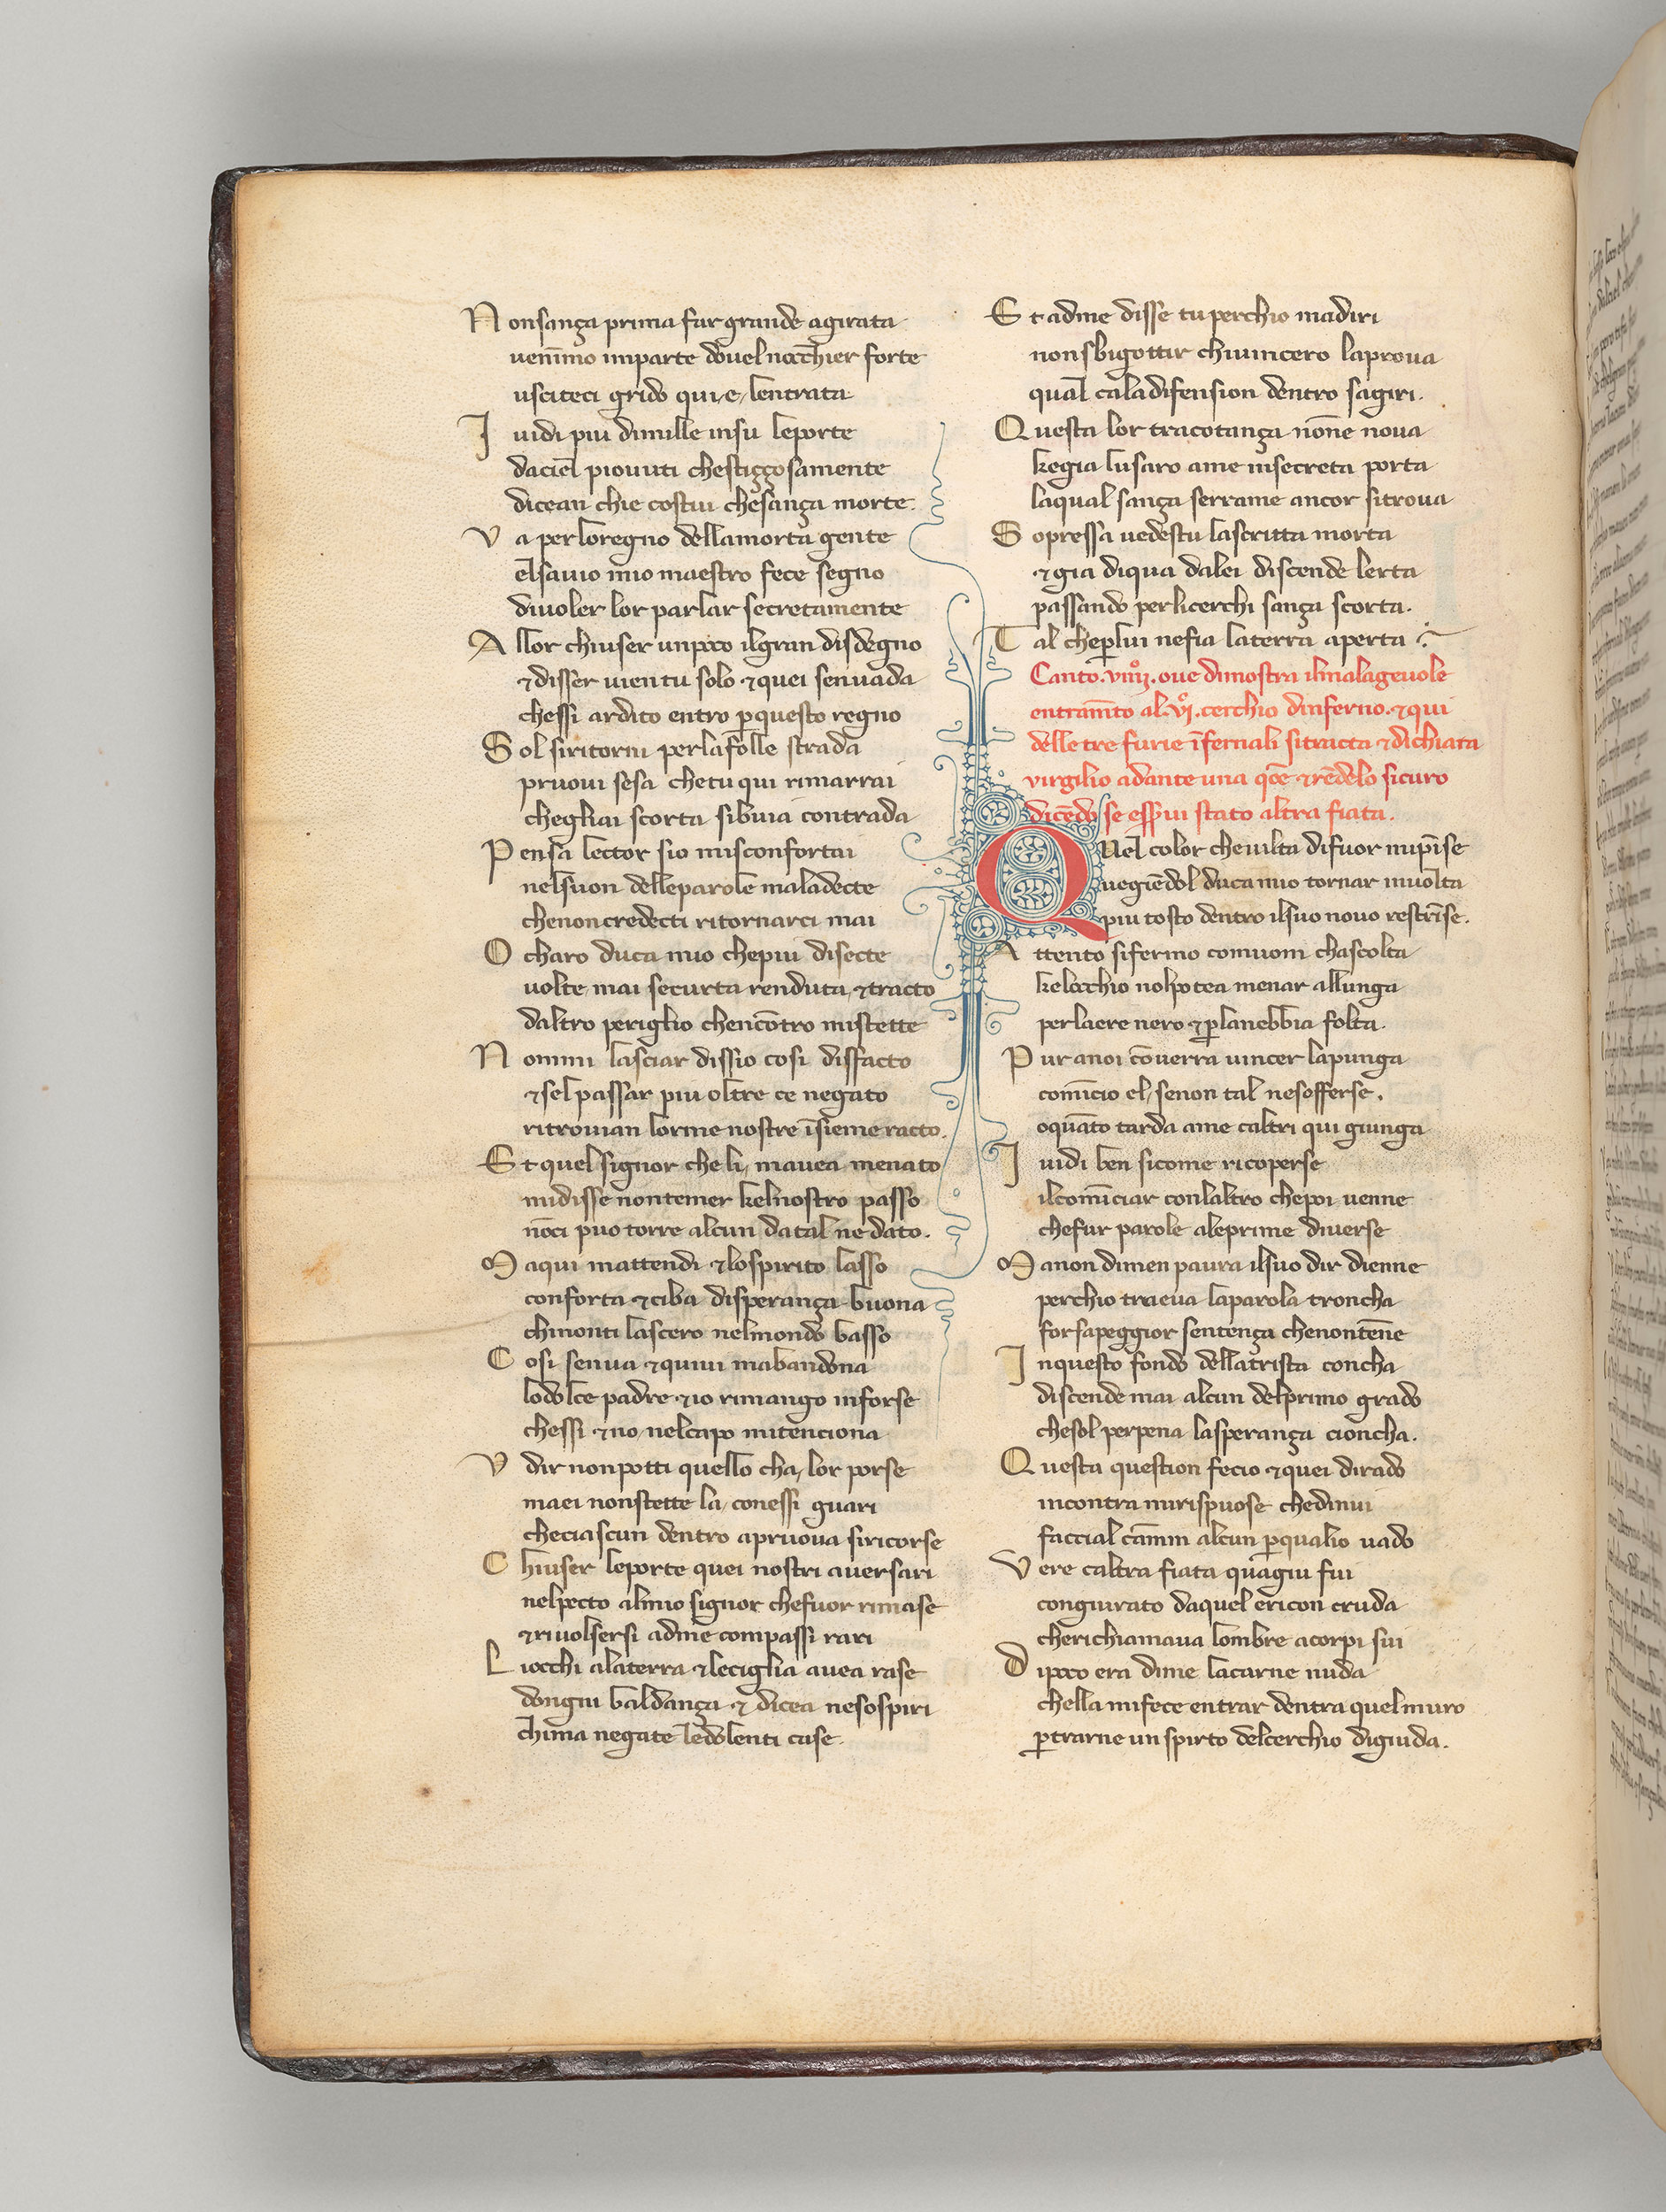 Nonsança prima far grande agirata
venīmo imparte dovel nocchier forte
usciteci grido qui e lentrata
I vidi piu dimille insu leporte
daciel piovuti chestiççosamente
dicean chie costui chesança morte.
Va perloregno dellamorta gente
elsavio mio maestro fece segno
divoler lor parlar secretamente
Allor chiuser unpoco ilgran disdegno
⁊ disser vien tu solo ⁊ quei senvada
chessi ardito entro ꝑquesto regno
Sol siritorni perlafolle strada
pruovi sesa chetu qui rimarrai
chegliai scorta sibuia contrada
Pensa lector sio misconfortai
nelsuon delleparole maladecte
chenoncredecti ritornarci mai
O charo duca mio chepiu disecte
volte mai securta renduta ⁊ tracto
daltro periglio chencōtro mistette
Nommi lasciar dissio cosi disfacto
⁊ sel passar piu oltre ce negato
ritrovian lorme nostre īsieme racto.
Et quel signor che li mavea menato
midisse nontemer kelnostro passo
nōci puo torre alcun da tal ne dato.
Maqui mattendi ⁊ lospirito lasso
conforta ⁊ ciba disperança buona
chinonti lascero nelmondo basso
Cosi senva ⁊ quivi mabandona
lodolce padre ⁊ io rimango inforse
chessi ⁊ no nelcapo mitenciona
Vdir nonpotti quello cha lor porse
maei nonstette la conessi guari
checiascun dentro apruova siricorse
Chiuser leporte quei nostri aversari
nelpecto almio signor chefuor rimase
⁊ rivolsersi adme compassi rari
Liocchi alaterra ⁊ leciglia avea rase
dongni baldança ⁊ dicea nesospiri
chima negate ledolenti case.
Et adme disse tu perchio madiri
nonsbigottir chiuincero laprova
qual caladifension dentro sagiri.
Questa lor tracotança nōne nova
kegia lusaro ame insecreta porta
laqual sança serrame ancor sitrova
Sopressa vedestu lascritta morta
⁊ gia diqua dalei discende lerta
passando perlicerchi sança scorta.
Tal cheꝑlui nefia laterra aperta
Canto .viiij°. ove dimostra ilmalagevole
entramēto al .vj°. cerchio dinferno. ⁊ qui
delle tre furie īfernali sitracta ⁊ dichiara
virgilio adante una qōe ⁊ rēdelo sicuro
dicēdo se esservi stato altra fiata.
QVel color chevilta difuor mipīse
vegiēdol duca mio tornar involta
piu tosto dentro ilsuo novo restrīse.
Attento sifermo comuom chascolta
kelocchio nolpotea menar allunga
perlaere nero ⁊ ꝑlanebbia folta.
Pur anoi cōverra vincer lapunga
comīcio el senon tal nesofferse.
oquāto tarda ame caltri qui giunga
I vidi ben sicome ricoperse
ilcomīciar conlaltro chepoi venne
chefur parole aleprime diverse
Manondimen paura ilsuo dir dienne
perchio traeva laparola troncha
forsapeggior sentença chenontēne
Inquesto fondo dellatrista concha
discende mai alcun delprimo grado
chesol perpena lasperança cioncha.
Questa question fecio ⁊ quei dirado
incontra mirispuose chedinui
faccial camin alcun ꝑqualio vado
Vere caltra fiata quagiu fui
congiurato daquel ericon cruda
cherichiamava lombre acorpi sui
Dipoco era dime lacarne nuda
chella mifece entrar dentra quelmuro
ꝑtrarne un spirto delcerchio digiuda.